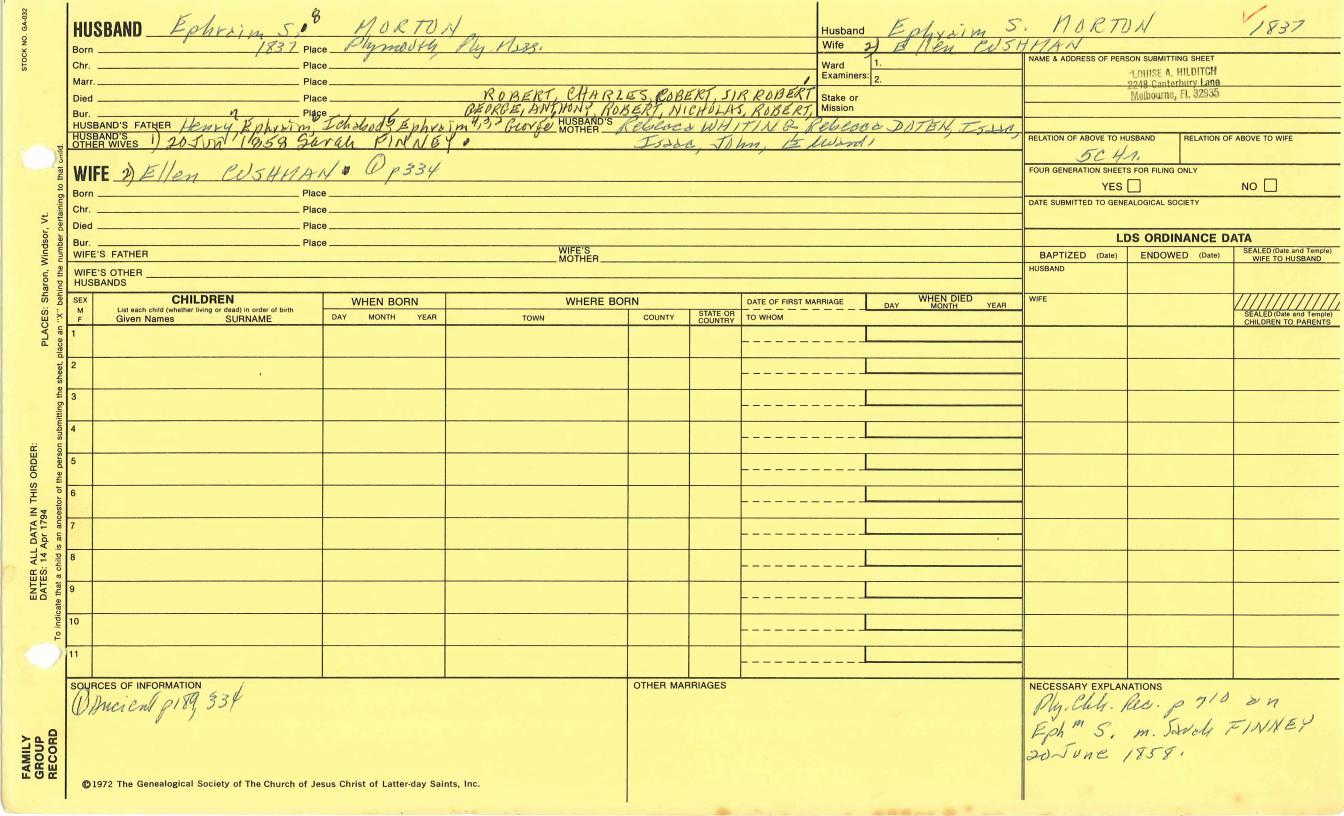 STOCK NO. GA-032
HUSBAND Ephraim S. 8 MORTON
Born 1837 Place Plymouth, Ply. Mass.
Chr. Place
Marr. Place
Died Place ROBERT, CHARLES, ROBERT, SIR ROBERT
Bur. Place GEORGE, ANTHONY, ROBERT, NICHOLAS, ROBERT,
HUSBAND'S FATHER Henry 7 Ephraim 6 Ichabod 5 Ephraim 4,3,2 George HUSBAND'S MOTHER Rebecca WHITING, Rebecca Isaac,
HUSBAND'S OTHER WIVES 1) 20 Jun 1858 Sarah FINNEY. Isaac, John, Edward
Husband Ephraim S. MORTON 1837
Wife 2) Ellen CUSHMAN
Ward Examiners: 1.
2.
Stake or Mission
NAME & ADDRESS OF PERSON SUBMITTING SHEET
LOUISE A. HILDITCH
2248 Canterbury Lane
Melbourne, Fl. 32935
RELATION OF ABOVE TO HUSBAND RELATION OF ABOVE TO WIFE
5C 4r.
FOUR GENERATION SHEETS FOR FILING ONLY
YES NO
DATE SUBMITTED TO GENEALOGICAL SOCIETY
WIFE 2) Ellen CUSHMAN ① p 334
Born Place
Chr. Place
Died Place
Bur. Place
WIFE'S FATHER WIFE'S MOTHER
WIFE'S OTHER HUSBANDS
LDS ORDINANCE DATA
BAPTIZED (Date) ENDOWED (Date) SEALED (Date and Temple) WIFE TO HUSBAND
HUSBAND
WIFE
SEALED (Date and Temple) CHILDREN TO PARENTS
SEX M F
CHILDREN
List each child (whether living or dead) in order of birth
Given Names SURNAME
WHEN BORN
DAY MONTH YEAR
WHERE BORN
TOWN COUNTY STATE OR COUNTRY
DATE OF FIRST MARRIAGE
TO WHOM
WHEN DIED
DAY MONTH YEAR
1
2
3
4
5
6
7
8
9
10
11
SOURCES OF INFORMATION
① Ancient p 189, 334
OTHER MARRIAGES
NECESSARY EXPLANATIONS
Ply. Chh. Rec. p 710 an
Eph m S. m. Sarah FINNEY
20 June 1858.
©1972 The Genealogical Society of The Church of Jesus Christ of Latter-day Saints, Inc.
FAMILY GROUP RECORD
ENTER ALL DATA IN THIS ORDER:
DATES: 14 Apr 1794
PLACES: Sharon, Windsor, Vt.
To indicate that a child is an ancestor of the person submitting the sheet, place an "X" behind the number pertaining to that child.